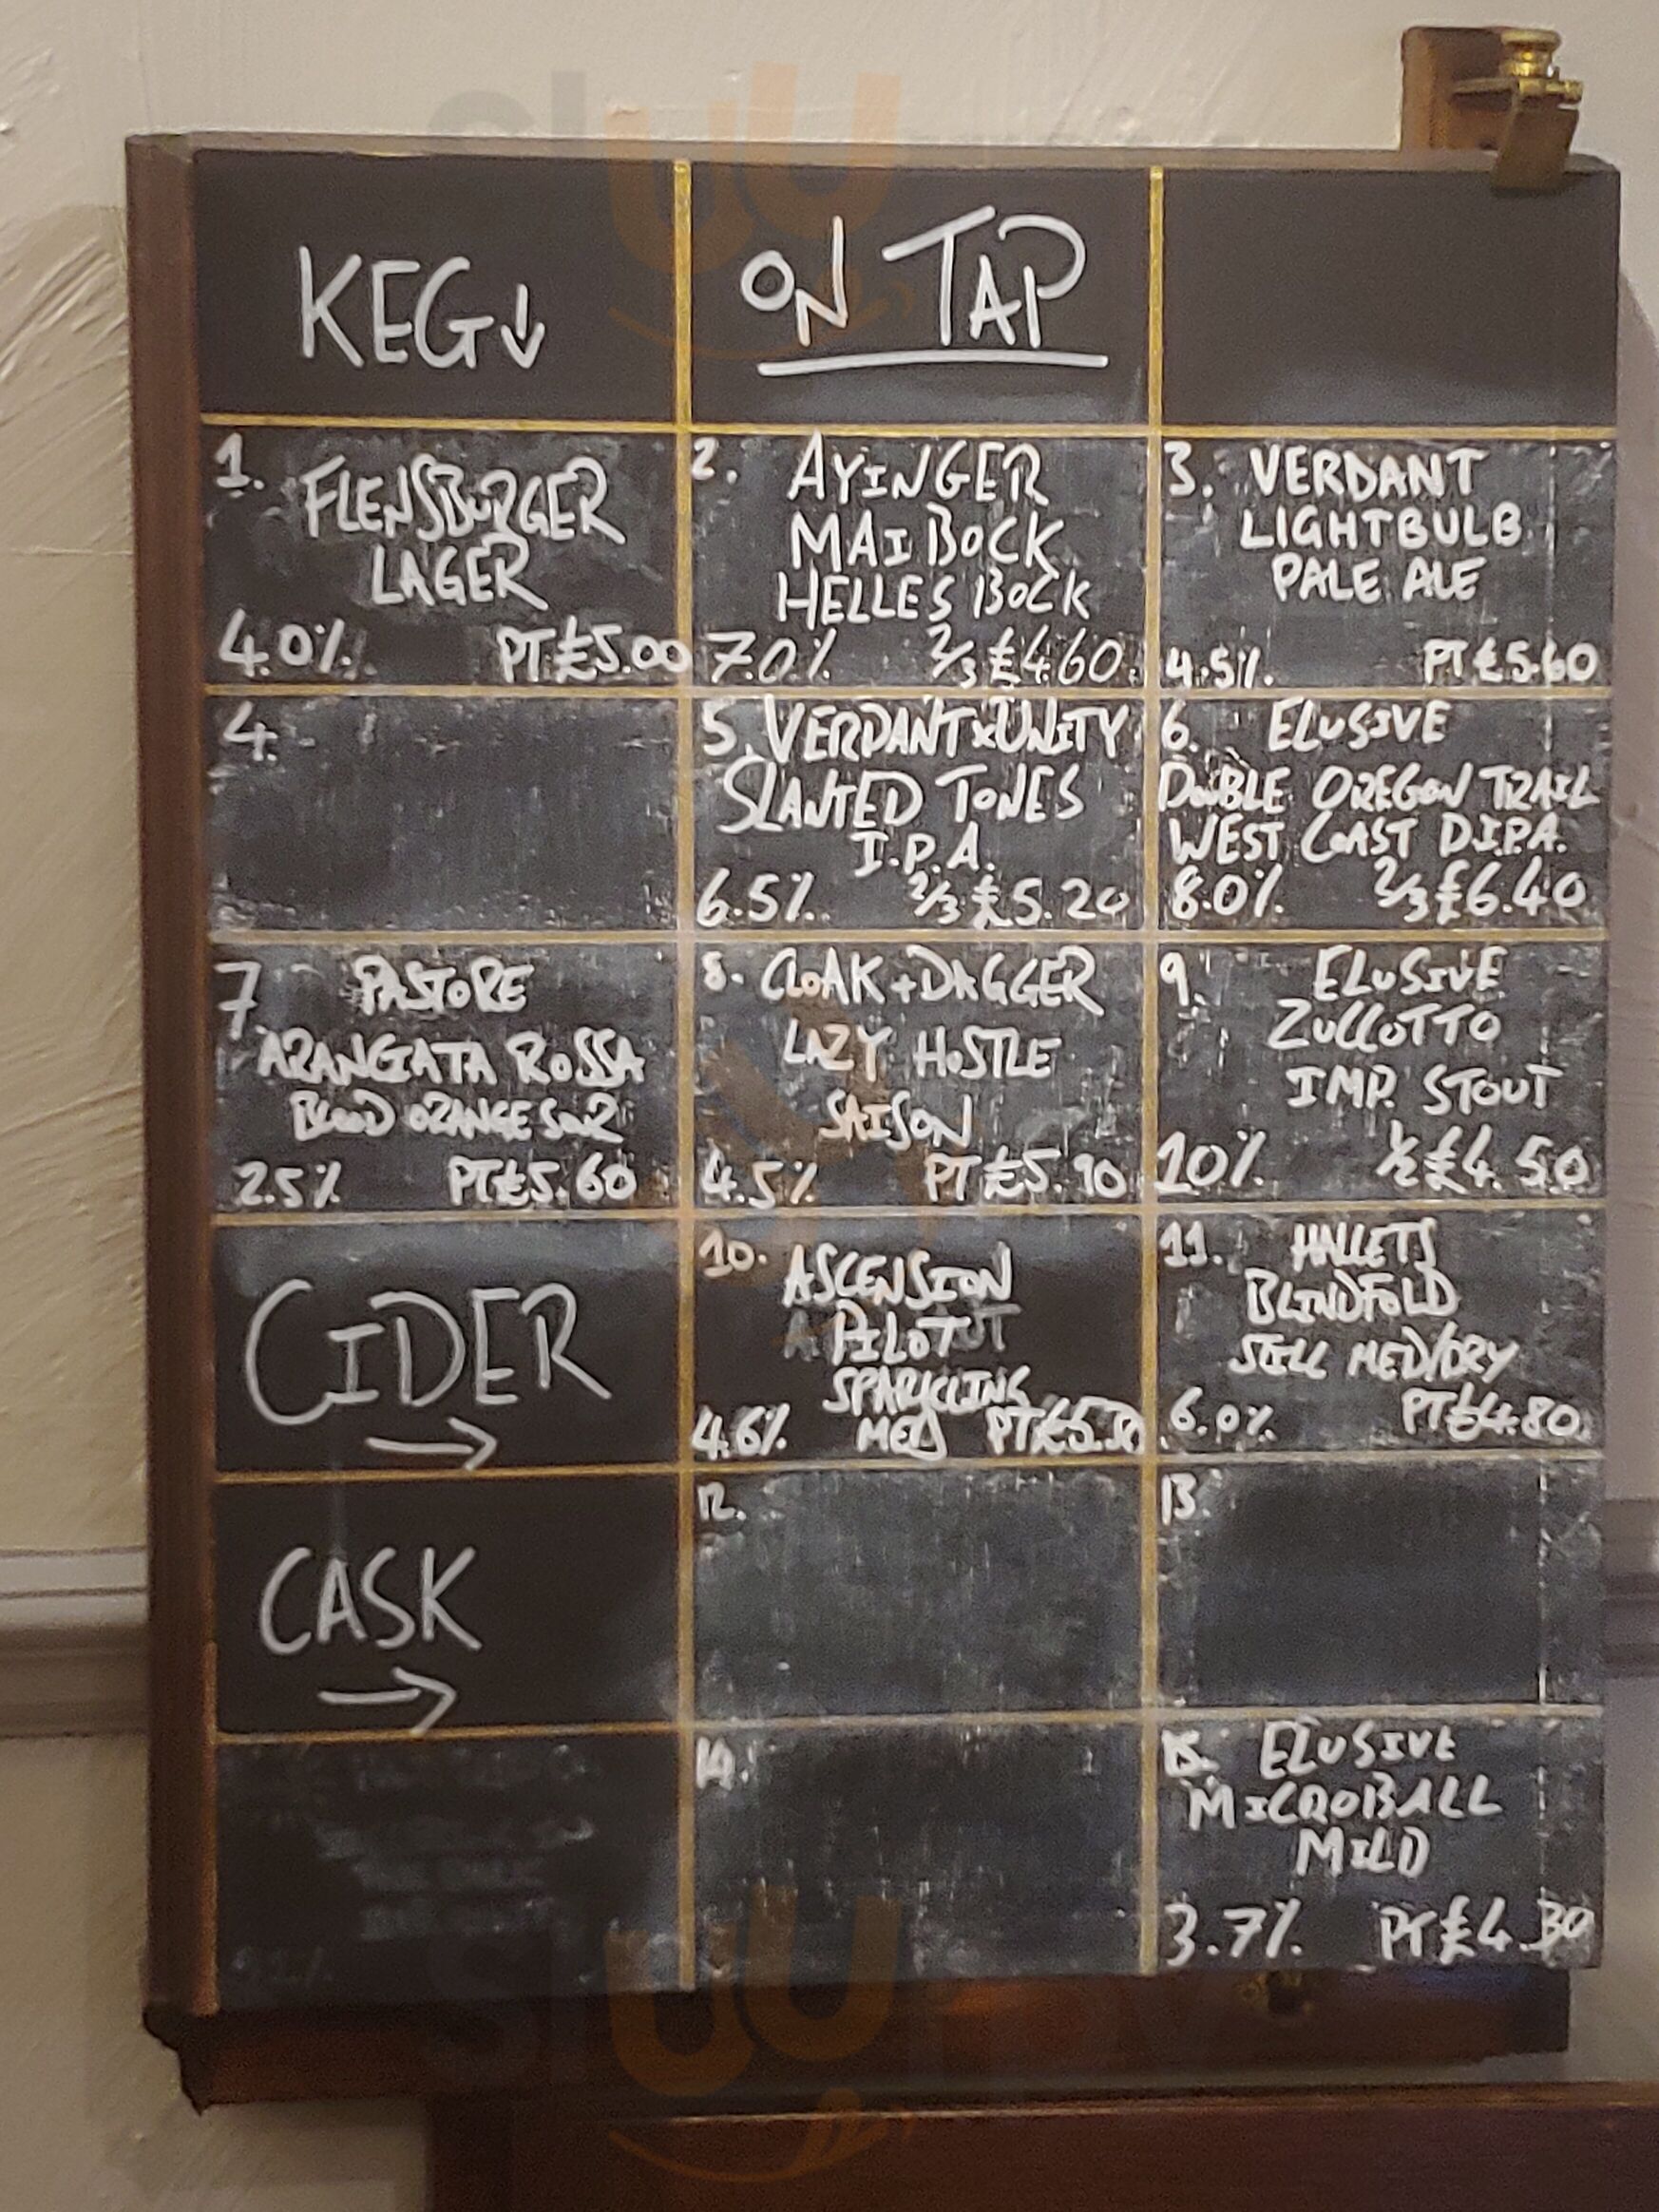 KEG↓
ON TAP
1. FLENSBURGER
LAGER
4.0% PT £5.00
2. AYINGER
MAIBOCK
HELLES BOCK
7.0% 2/3 £4.60
3. VERDANT
LIGHTBULB
PALE ALE
4.5% PT £5.60
4.
5. VERDANT x UNITY
SLANTED TONES
I.P.A.
6.5% 2/3 £5.20
6. ELUSIVE
DOUBLE OREGON TRAIL
WEST COAST D.I.P.A.
8.0% 2/3 £6.40
7. PASTORE
ARANGIATA ROSSA
BLOOD ORANGE SOUR
2.5% PT £5.60
8. CLOAK + DAGGER
LAZY HOSTLE
SAISON
4.5% PT £5.90
9. ELUSIVE
ZUCCOTTO
IMP. STOUT
10% 1/2 £4.50
CIDER
→
10. ASCENSION
PILOT
SPARKLING
4.6% MED PT £5.30
11. HALLETS
BLINDFOLD
STILL MED/DRY
6.0% PT £4.80
CASK
→
12.
13.
14.
15. ELUSIVE
MICROBALL
MILD
3.7% PT £4.30